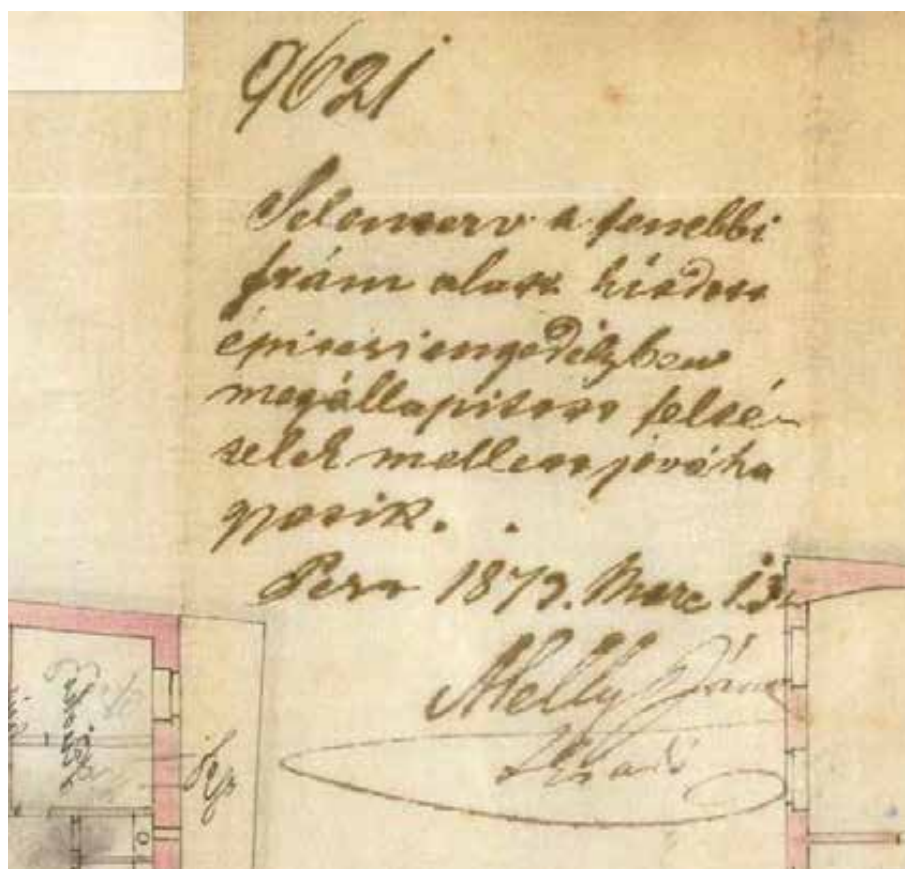 9621
Jelenterv a fenebbi
szám alatt kiadott
épitési engedélyben
megállapitott felté-
telek mellett jóváha
gyatik.
Pest 1873. Marc 13